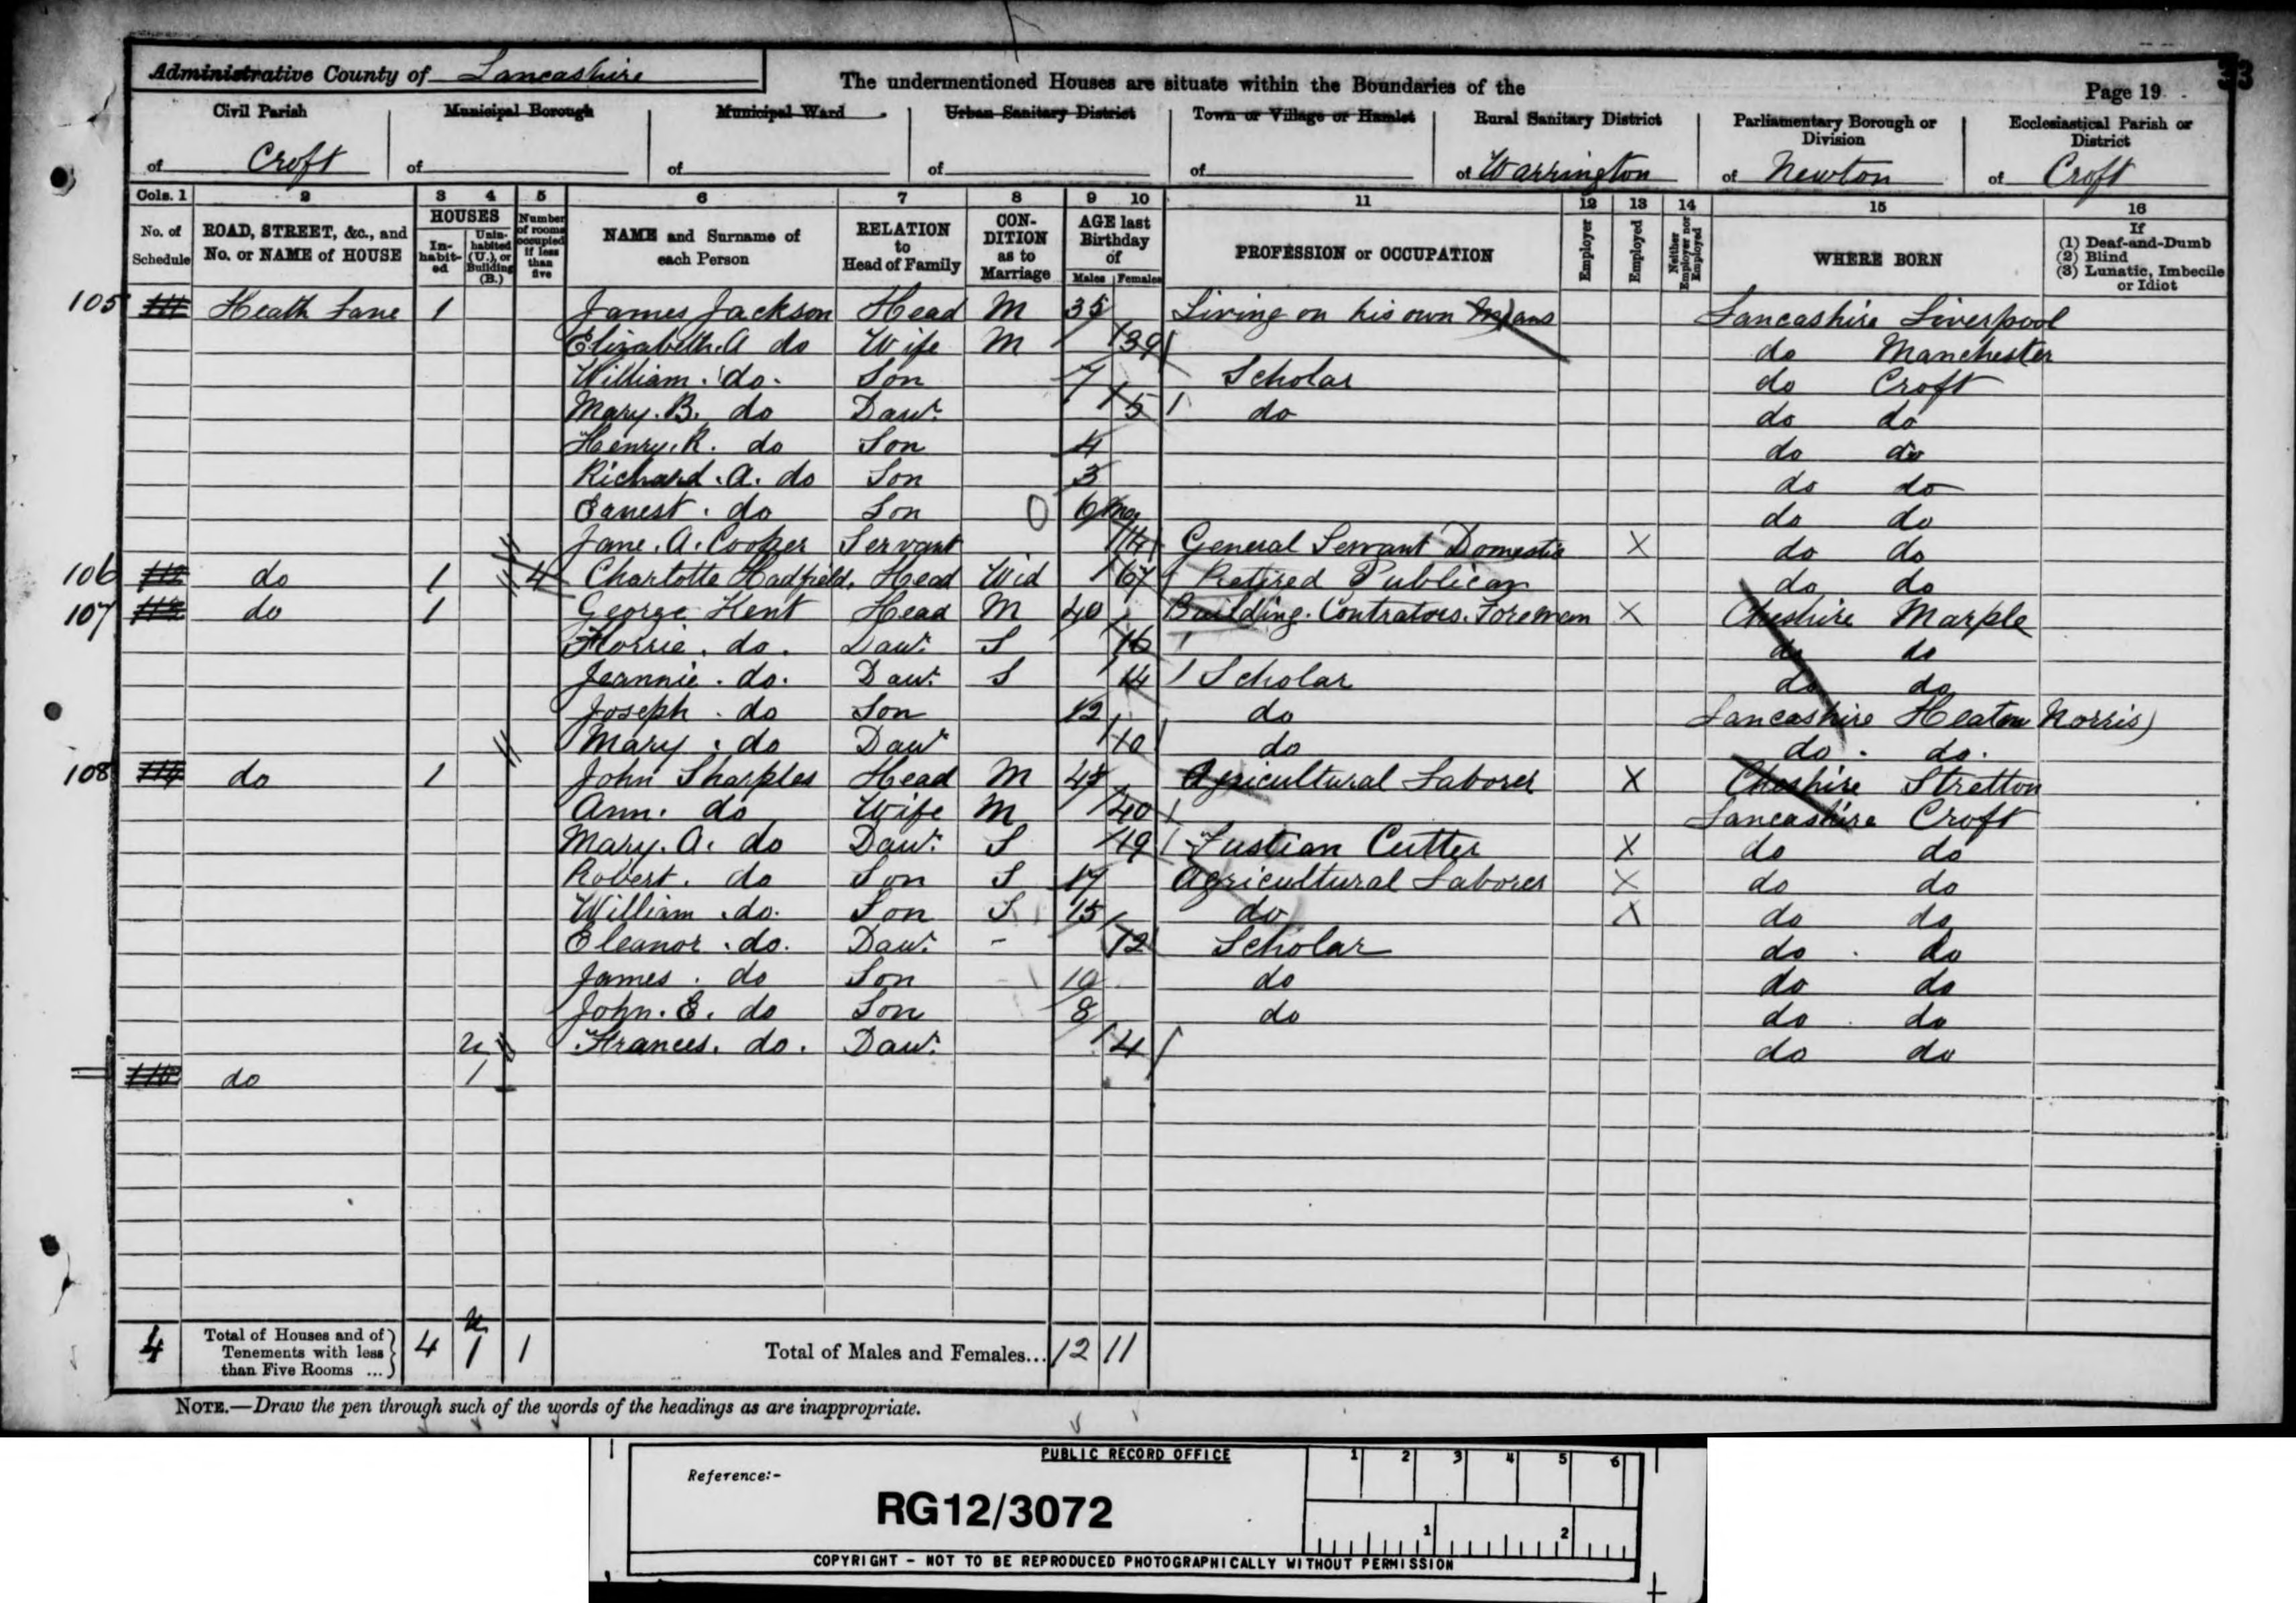 33
Administrative County of Lancashire
The undermentioned Houses are situate within the Boundaries of the
Page 19
Civil Parish of Croft
Municipal Borough of
Municipal Ward of
Urban Sanitary District of
Town or Village or Hamlet of
Rural Sanitary District of Warrington
Parliamentary Borough or Division of Newton
Ecclesiastical Parish or District of Croft
Cols. 1 2 3 4 5 6 7 8 9 10 11 12 13 14 15 16
No. of Schedule
ROAD, STREET, &c., and No. or NAME of HOUSE
HOUSES
In-habit-ed
Unin-habited (U.), or Building (B.)
Number of rooms occupied if less than five
NAME and Surname of each Person
RELATION to Head of Family
CON-DITION as to Marriage
AGE last Birthday of
Males Females
PROFESSION or OCCUPATION
Employer
Employed
Neither Employer nor Employed
WHERE BORN
If
(1) Deaf-and-Dumb
(2) Blind
(3) Lunatic, Imbecile or Idiot
105 111 Heath Lane 1 James Jackson Head M 35 Living on his own Means Lancashire Liverpool
Elizabeth. A do Wife M 39 do Manchester
William. do. Son 7 Scholar do Croft
Mary. B. do Daur. 5 do do do
Henry. R. do Son 4 do do
Richard. A. do Son 3 do do
Ernest. do Son 6 mos do do
Jane. A. Cooper Servant 14 General Servant Domestic X do do
106 112 do 1 4 Charlotte Hadfield. Head Wid 67 Retired Publican do do
107 113 do 1 George Kent Head M 40 Building. Contrators. Foreman X Cheshire Marple
Florrie. do. Daur. S 16 do do
Jeannie. do. Daur. S 14 Scholar do do
Joseph. do Son 12 do Lancashire Heaton Norris
Mary. do Daur 10 do do. do.
108 114 do 1 John Sharples Head M 48 Agricultural Laborer X Cheshire Stretton
Ann. do Wife M 40 Lancashire Croft
Mary. A. do Daur. S 19 Fustian Cutter X do do
Robert. do Son S 17 Agricultural Laborer X do do
William. do. Son S 15 do X do do
Eleanor. do. Daur. - 12 Scholar do do
James. do Son 10 do do do
John. E. do Son 8 do do do
Frances. do. Daur. 4 do do
115 do u 1
4 Total of Houses and of Tenements with less than Five Rooms ... 4 u 1 1 Total of Males and Females... 12 11
NOTE.—Draw the pen through such of the words of the headings as are inappropriate.
PUBLIC RECORD OFFICE
1 2 3 4 5 6
Reference:-
RG12/3072
1 2
COPYRIGHT - NOT TO BE REPRODUCED PHOTOGRAPHICALLY WITHOUT PERMISSION